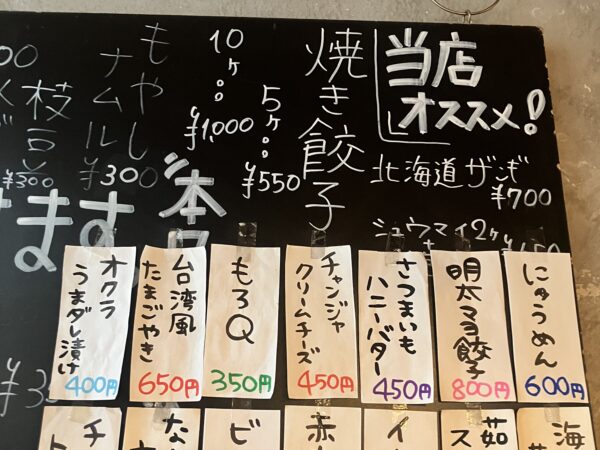 当店
オススメ!
北海道ザンギ
¥700
シュウマイ2ヶ
焼き餃子
5ヶ
¥550
10ヶ
¥1,000
もやし
ナムル
¥300
枝豆
¥300
本
ます。
にゅうめん
600円
明太マヨ餃子
800円
さつまいも
ハニーバター
450円
チャンジャ
クリームチーズ
450円
もろQ
350円
台湾風
たまごやき
650円
オクラ
うまダレ漬け
400円
海
茹
ス
イ
赤
ビ
な
チ